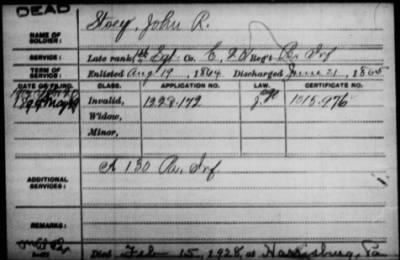 DEAD
NAME OF SOLDIER: Stoey, John R.
SERVICE: Late rank Sgt Co. C, 201 Reg't Pa Inf
TERM OF SERVICE: Enlisted Aug 19, 1864 Discharged June 21, 1865
DATE OF FILING. CLASS. APPLICATION NO. LAW. CERTIFICATE NO.
Invalid, 1228.172 1015.976
Widow,
Minor,
ADDITIONAL SERVICES: A 130 Pa. Inf
REMARKS:
Died Feb 15, 1928, at Harrisburg, Pa